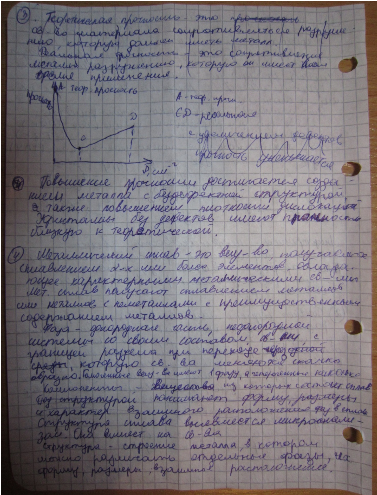 ③ Теоретическая прочность - это
св-во материала сопротивляться разруше-
нию, которую должен иметь металл.
Реальная прочность - это сопротивление
металла разрушению, которую он имеет
время применения.
А - теор. прочность
прочность
А - теор. проч
CD - реальная
с увеличением дефектов
прочность увеличивается
Повышение прочности достигается созда-
нием металла с бездефектной структурой,
а также повышением плотности дислокаций.
Кристаллы без дефектов имеют прочность
близкую к теоретической.
Металлический сплав - это вещ-во, получаемое
сплавлением 2-х или более элементов, облада-
ющее характерными металлическими св-ми.
Мет. сплав получают сплавлением металлов
или металлов с неметаллами с преимущественным
содержанием металлов.
Фаза - однородная часть неоднородной
системы со своим составом, св-ми, с
границей раздела, при переходе
которую св-ва меняются
компоненты - вещества из которых состоит сплав
Под структурой понимают форму, размеры
и характер взаимного расположения фаз в сплаве
Структура сплава выявляется микроанали-
зом. Она влияет на св-ва
структура - строение металла, в котором
можно различать отдельные фазы, их
форму, размеры, взаимное расположение.